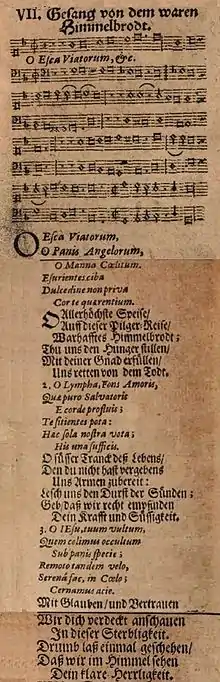 VII. Gesang von dem waren
Himmelbrodt.
O Esca Viatorum, &c.
O Esca Viatorum,
O Panis Angelorum,
O Manna Cœlitum.
Esurientes ciba
Dulcedine non priva
Corte quærentium.
O Allerhöchste Speise/
Auff dieser Pilger-Reise/
Warhafftes Himmelbrod:
Thu uns den Hunger stillen/
Mit deiner Gnad erfüllen/
Uns retten von dem Todt.
2. O Lympha, Fons Amoris,
Quæ puro Salvatoris
E corde profluis;
Te sitientes pota:
Hæc sola nostra vota;
His una sufficis.
O süsser Tranck deß Lebens/
Den du nicht hast vergebens
Uns Armen zubereit:
Lesch uns den Durst der Sünden;
Geb/ daß wir recht empfinden
Dein Krafft und Süssigkeit.
3. O Iesu, tuum vultum,
Quem colimus occultum
Sub panis specie;
Remoto tandem velo,
Serena fac, in Cœlo;
Cernamus acie.
Mit Glauben/ und Vertrauen
Wir dich verdeckt anschauen
In dieser Sterbligkeit.
Drumb laß einmal geschehen/
Daß wir im Himmel sehen
Dein klare Herrligkeit.